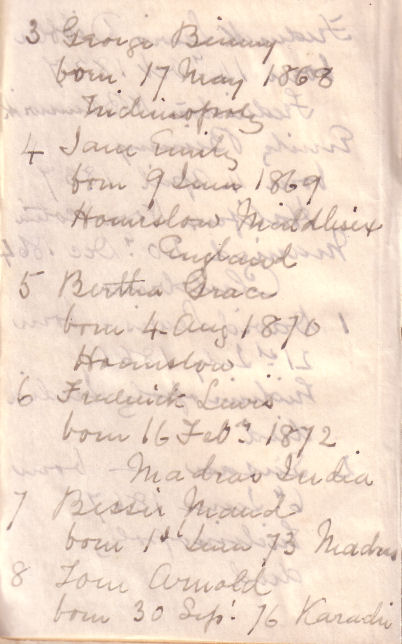 3 George Binny
born 17 May 1868
Trichinopoly
4 Jane Emily
born 9 June 1869
Hounslow Middlesex
England
5 Bertha Grace
born 4 Aug 1870
Hounslow
6 Frederick Lewis
born 16 Feb 1872
Madras India
7 Bessie Maud
born 1st June 73 Madras
8 Tom Arnold
born 30 Sep: 76 Karachi